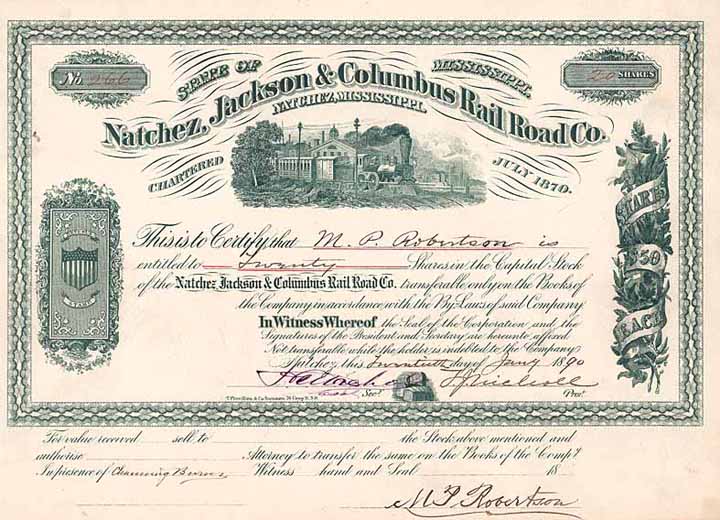 No.
20 SHARES
STATE OF MISSISSIPPI.
Natchez, Jackson & Columbus Rail Road Co.
NATCHEZ, MISSISSIPPI.
CHARTERED JULY 1870.
SHARES
$50
EACH
This is to Certify that M. P. Robertson is
entitled to Twenty Shares in the Capital Stock
of the Natchez Jackson & Columbus Rail Road Co. transferable only on the Books of
the Company in accordance with the By-Laws of said Company
In Witness Whereof the Seal of the Corporation and the
Signatures of the President and Secretary are hereunto affixed
Not transferable while the holder is indebted to the Company
Natchez, this Twentieth day of Jany 1890
Secy. Prest.
For value received sell to the Stock above mentioned and
authorise Attorney to transfer the same on the Books of the Compy
In presence of Witness hand and Seal 18
M P Robertson